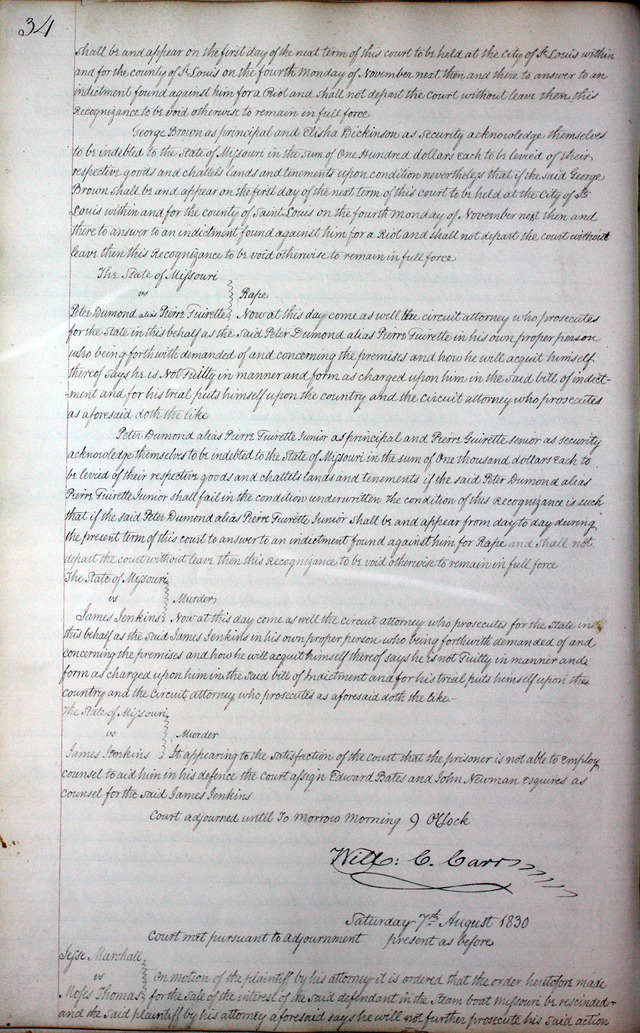 34
shall be and appear on the first day of the next term of this court to be held at the City of St Louis within
and for the county of St Louis on the fourth Monday of November next then and there to answer to an
indictment found against him for a Riot and shall not depart the court without leave then this
Recognizance to be void otherwise to remain in full force
George Brown as principal and Elisha Dickinson as security acknowledge themselves
to be indebted to the State of Missouri in the sum of One Hundred dollars each to be levied of their
respective goods and chattels lands and tenements upon condition nevertheless that if the said George
Brown shall be and appear on the first day of the next term of this court to be held at the City of St
Louis within and for the county of Saint Louis on the fourth monday of November next then and
there to answer to an indictment found against him for a Riot and shall not depart the court without
leave then this Recognizance to be void otherwise to remain in full force
The State of Missouri
vs Rape
Peter Dumond alias Pierre Guirette Now at this day come as well the circuit attorney who prosecutes
for the State in this behalf as the said Peter Dumond alias Pierre Guirette in his own proper person
who being forthwith demanded of and concerning the premises and how he will acquit himself
thereof says he is Not Guilty in manner and form as charged upon him in the said bill of indict-
ment and for his trial puts himself upon the country and the circuit attorney who prosecutes
as aforesaid doth the like
Peter Dumond alias Pierre Guirette Junior as principal and Pierre Guirette senior as security
acknowledge themselves to be indebted to the State of Missouri in the sum of One thousand dollars each to
be levied of their respective goods and chattels lands and tenements if the said Peter Dumond alias
Pierre Guirette Junior shall fail in the condition underwritten the condition of this Recognizance is such
that if the said Peter Dumond alias Pierre Guirette Junior shall be and appear from day to day during
the present term of this court to answer to an indictment found against him for Rape and shall not
depart the court without leave then this Recognizance to be void otherwise to remain in full force
The State of Missouri
vs Murder
James Jenkins Now at this day come as well the circuit attorney who prosecutes for the State in
this behalf as the said James Jenkins in his own proper person who being forthwith demanded of and
concerning the premises and how he will acquit himself thereof says he is not Guilty in manner and
form as charged upon him in the said bill of Indictment and for his trial puts himself upon the
country and the Circuit attorney who prosecutes as aforesaid doth the like
The State of Missouri
vs Murder
James Jenkins It appearing to the satisfaction of the court that the prisoner is not able to employ
counsel to aid him in his defence the court assign Edward Bates and John Newman esquires as
counsel for the said James Jenkins
Court adjourned until To morrow Morning 9 O'Clock
Will: C. Carr
Saturday 7th August 1830
Court met pursuant to adjournment present as before
Jesse Marshall
vs On motion of the plaintiff by his attorney it is ordered that the order heretofore made
Moses Thomas for the sale of the interest of the said defendant in the steam boat Missouri be rescinded
and the said plaintiff by his attorney aforesaid says he will not further prosecute his said action